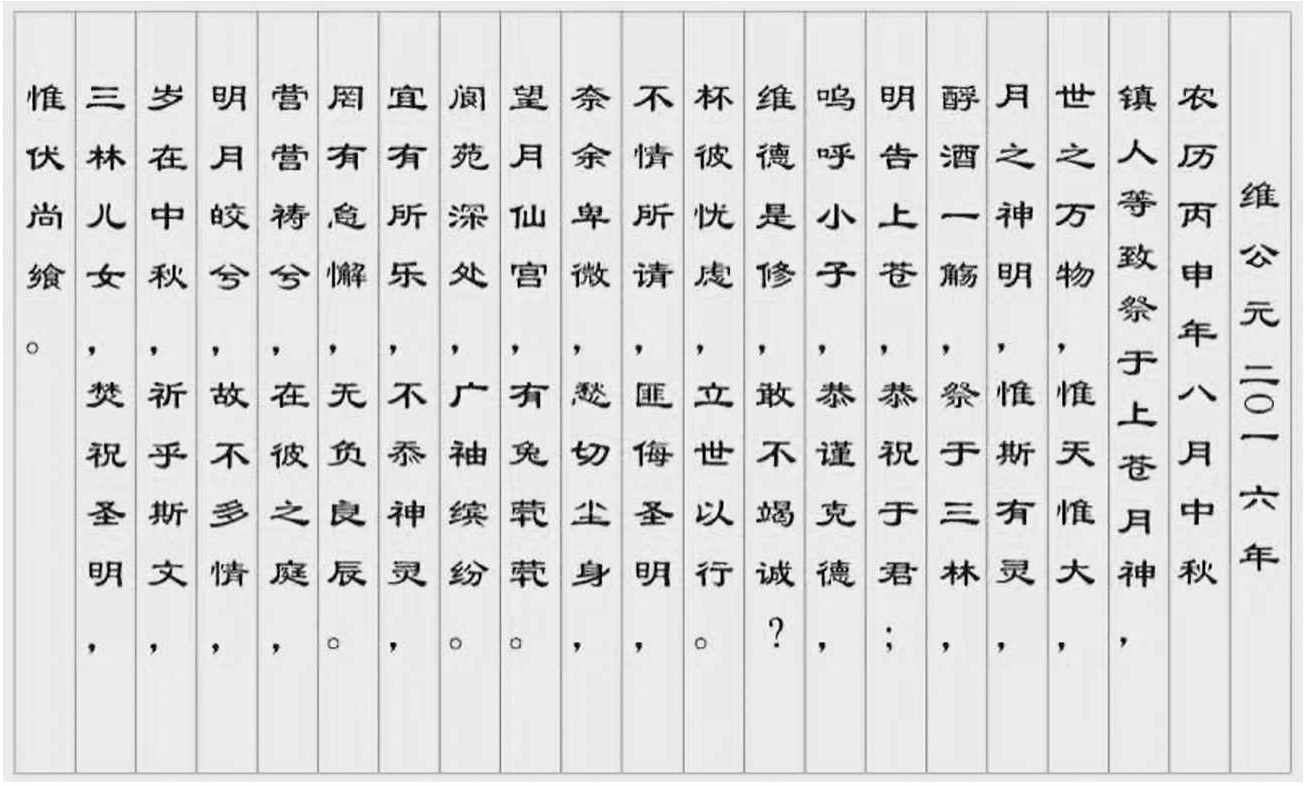 维公元二〇一六年
农历丙申年八月中秋
镇人等致祭于上苍月神，
世之万物，惟天惟大，
月之神明，惟斯有灵，
酹酒一觞，祭于三林，
明告上苍，恭祝于君；
呜呼小子，恭谨克德，
维德是修，敢不竭诚？
杯彼忧虑，立世以行。
不情所请，匪侮圣明，
奈余卑微，愁切尘身，
望月仙宫，有兔茕茕。
阆苑深处，广袖缤纷。
宜有所乐，不忝神灵，
罔有怠懈，无负良辰。
营营祷兮，在彼之庭，
明月皎兮，故不多情，
岁在中秋，祈乎斯文，
三林儿女，焚祝圣明，
惟伏尚飨。